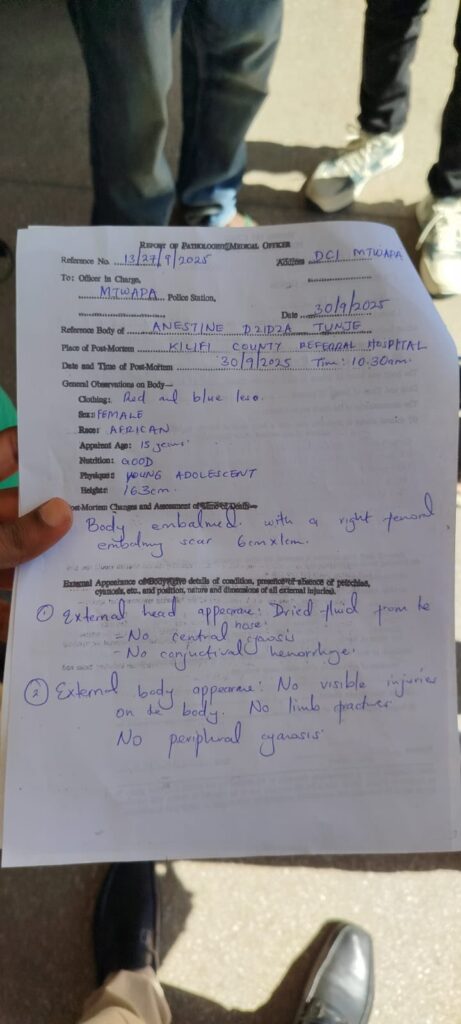 REPORT OF PATHOLOGIST/MEDICAL OFFICER
Reference No. 13/27/9/2025 Address DCI MTWAPA
To: Officer in Charge,
MTWAPA Police Station,
Date 30/9/2025
Reference Body of ANESTINE DZIDZA TUNJE
Place of Post-Mortem KILIFI COUNTY REFERRAL HOSPITAL
Date and Time of Post-Mortem 30/9/2025 Time: 10.30am.
General Observations on Body—
Clothing: Red and blue leso.
Sex: FEMALE
Race: AFRICAN
Apparent Age: 15 years
Nutrition: GOOD
Physique: YOUNG ADOLESCENT
Height: 163cm
Post-Mortem Changes and Assessment of Time of Death—
Body embalmed, with a right femoral
embalmng scar 6cm x 1cm.
External Appearance of Body (give details of condition, presence or absence of petechiae,
cyanosis, etc., and position, nature and dimensions of all external injuries).
① External head appearance: Dried fluid from the
nose
- No central cyanosis
- No conjuctival hemorrhage.
② External body appearance: No visible injuries
on the body. No limb fractures
No peripheral cyanosis.